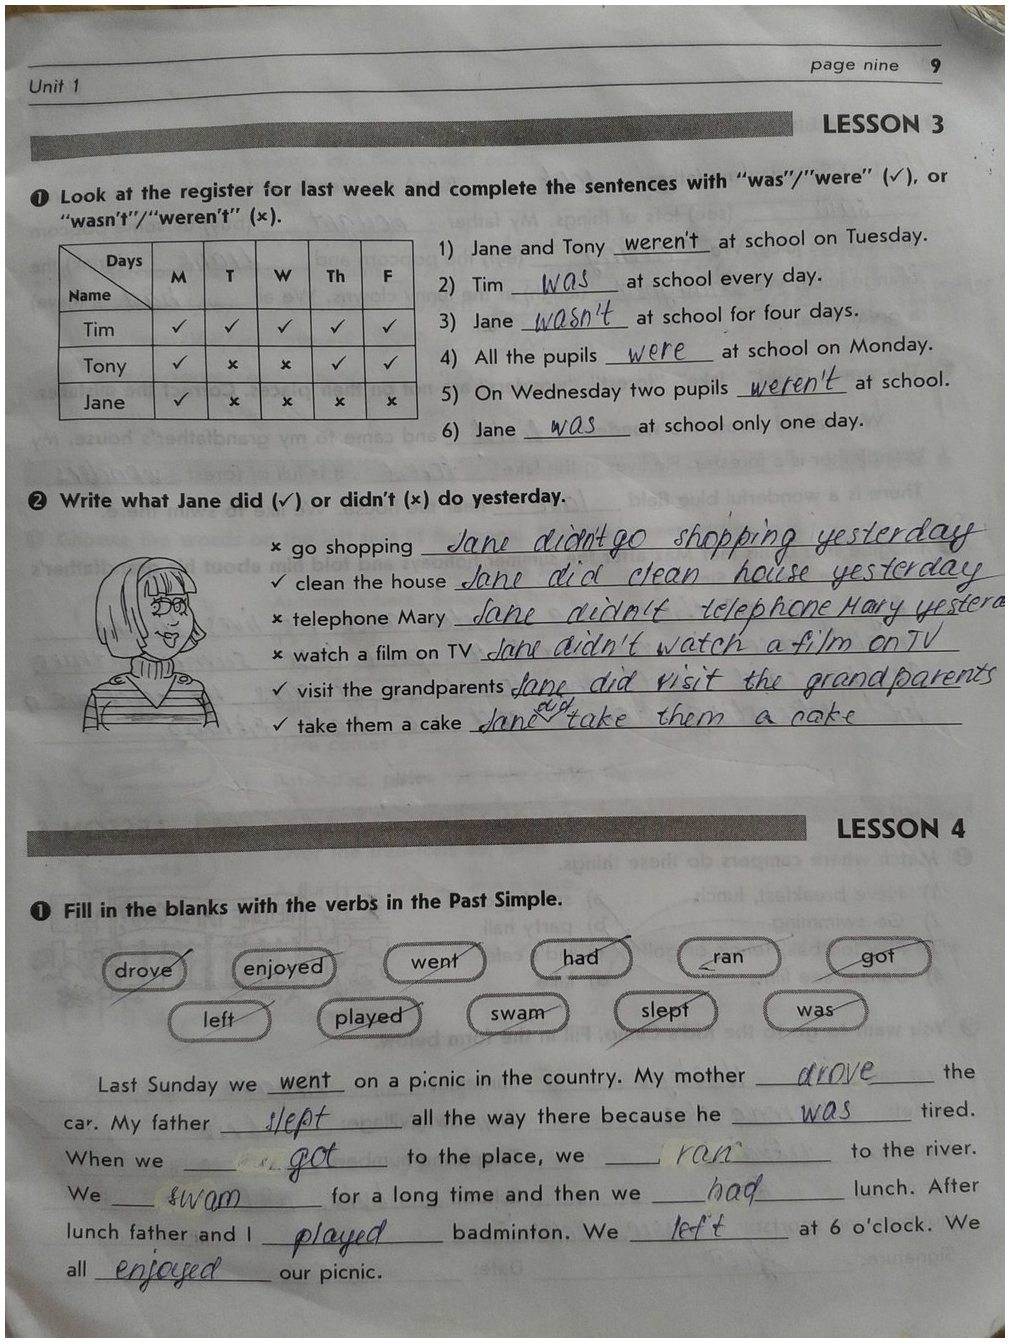 Unit 1 page nine 9
LESSON 3
1 Look at the register for last week and complete the sentences with "was"/"were" (✓), or
"wasn't"/"weren't" (×).
Days M T W Th F
Name
Tim ✓ ✓ ✓ ✓ ✓
Tony ✓ × × ✓ ✓
Jane ✓ × × × ×
1) Jane and Tony weren't at school on Tuesday.
2) Tim was at school every day.
3) Jane wasn't at school for four days.
4) All the pupils were at school on Monday.
5) On Wednesday two pupils weren't at school.
6) Jane was at school only one day.
2 Write what Jane did (✓) or didn't (×) do yesterday.
× go shopping Jane didn't go shopping yesterday
✓ clean the house Jane did clean house yesterday
× telephone Mary Jane didn't telephone Mary yestera
× watch a film on TV Jane didn't watch a film on TV
✓ visit the grandparents Jane did visit the grandparents
✓ take them a cake Jane did take them a cake
LESSON 4
1 Fill in the blanks with the verbs in the Past Simple.
drove enjoyed went had ran got
left played swam slept was
Last Sunday we went on a picnic in the country. My mother drove the
car. My father slept all the way there because he was tired.
When we got to the place, we ran to the river.
We swam for a long time and then we had lunch. After
lunch father and I played badminton. We left at 6 o'clock. We
all enjoyed our picnic.